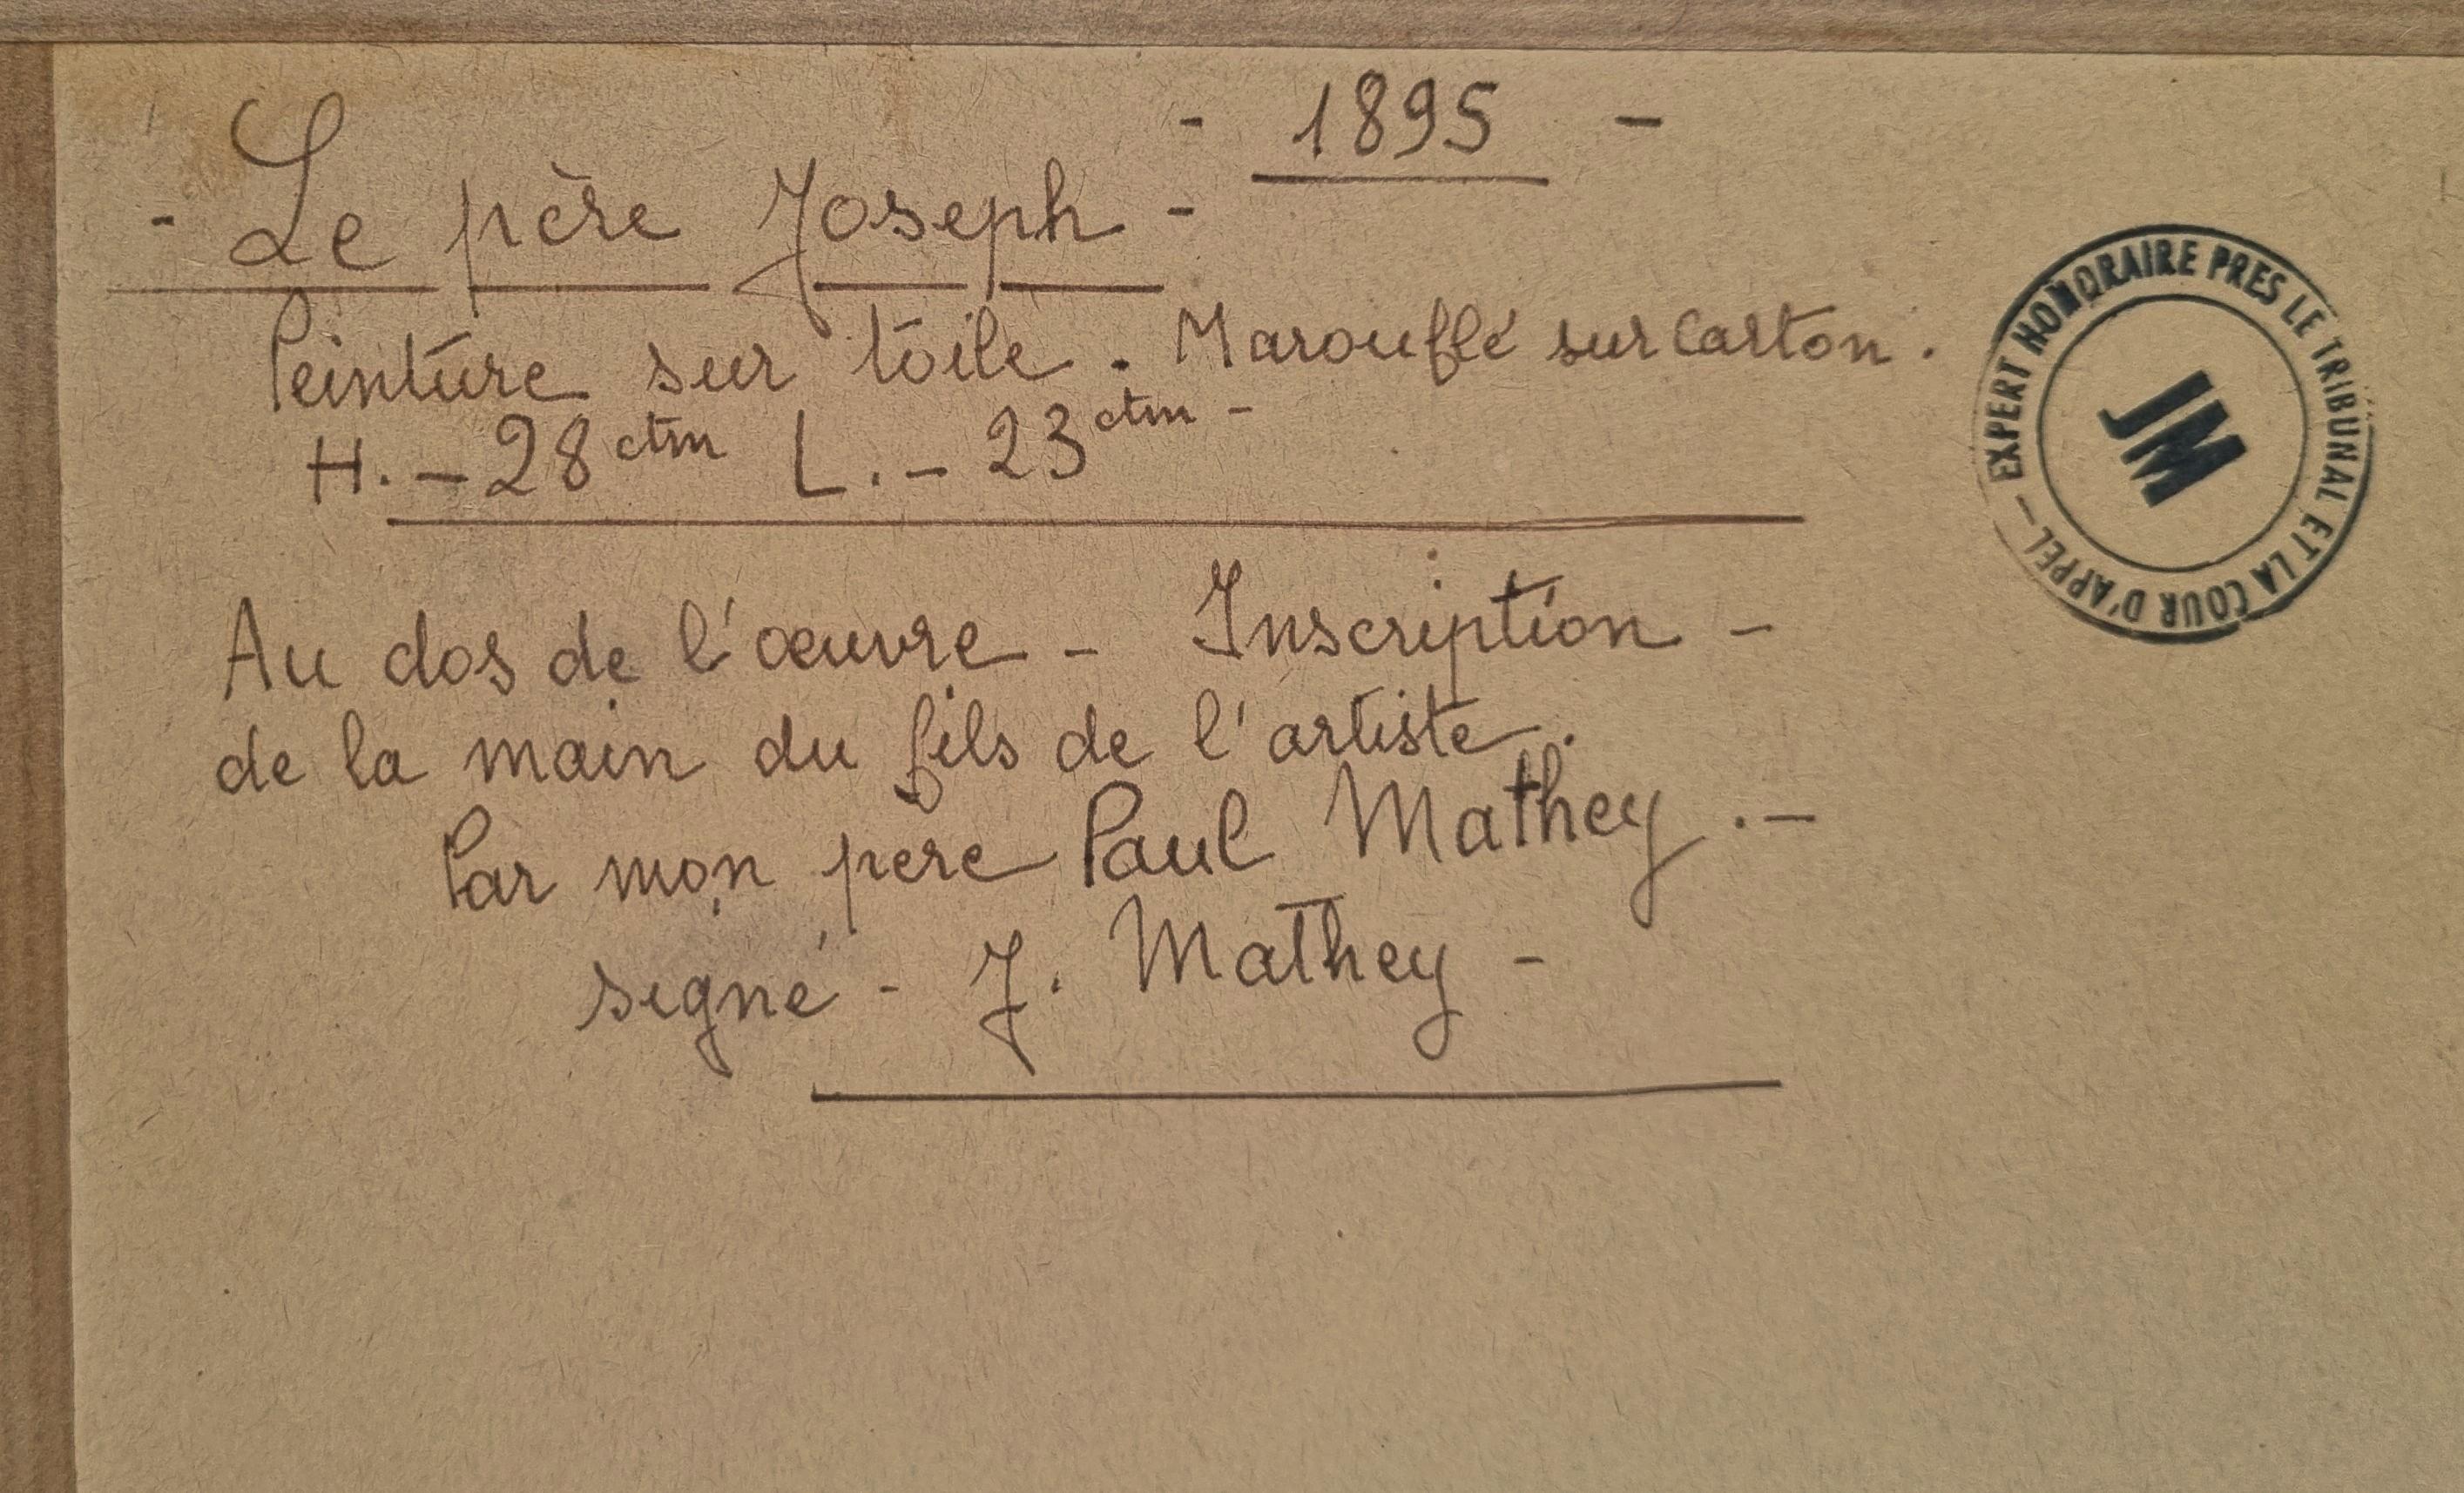 - 1895 -
- Le père Joseph -
Peinture sur toile. Marouflé sur carton.
H. - 28 ctm L. - 23 ctm -
Au dos de l'œuvre - Inscription -
de la main du fils de l'artiste.
Par mon père Paul Mathey. -
signé - J. Mathey -
EXPERT HONORAIRE PRES LE TRIBUNAL ET LA COUR D'APPEL -
JM